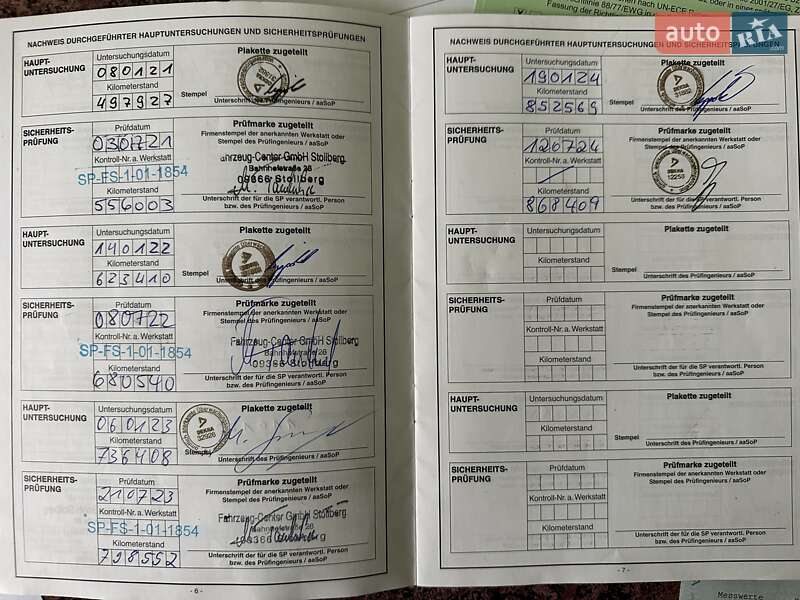 nach UN-ECE
2001/27/EG, Z
chtlinie 88/77/EWG in
Fassung der Richt
auto RIA.com
NACHWEIS DURCHGEFÜHRTER HAUPTUNTERSUCHUNGEN UND SICHERHEITSPRÜFUNGEN
HAUPT-
UNTERSUCHUNG
Untersuchungsdatum
080121
Kilometerstand
497927
Plakette zugeteilt
Stempel
Unterschrift des Prüfingenieurs / aaSoP
SICHERHEITS-
PRÜFUNG
Prüfdatum
030721
Kontroll-Nr. a. Werkstatt
SP-FS-1-01-1854
Kilometerstand
556003
Prüfmarke zugeteilt
Firmenstempel der anerkannten Werkstatt oder
Stempel des Prüfingenieurs / aaSoP
Fahrzeug-Center GmbH Stollberg
Bahnhofstraße 28
09366 Stollberg
Unterschrift der für die SP verantwortl. Person
bzw. des Prüfingenieurs / aaSoP
HAUPT-
UNTERSUCHUNG
Untersuchungsdatum
140122
Kilometerstand
623410
Plakette zugeteilt
DEKRA
Stempel
Unterschrift des Prüfingenieurs / aaSoP
SICHERHEITS-
PRÜFUNG
Prüfdatum
080722
Kontroll-Nr. a. Werkstatt
SP-FS-1-01-1854
Kilometerstand
680540
Prüfmarke zugeteilt
Firmenstempel der anerkannten Werkstatt oder
Stempel des Prüfingenieurs / aaSoP
Fahrzeug-Center GmbH Stollberg
Bahnhofstraße 28
09366 Stollberg
Unterschrift der für die SP verantwortl. Person
bzw. des Prüfingenieurs / aaSoP
HAUPT-
UNTERSUCHUNG
Untersuchungsdatum
060123
Kilometerstand
736408
Plakette zugeteilt
DEKRA
32926
Stempel
Unterschrift des Prüfingenieurs / aaSoP
SICHERHEITS-
PRÜFUNG
Prüfdatum
210723
Kontroll-Nr. a. Werkstatt
SP-FS-1-01-1854
Kilometerstand
798552
Prüfmarke zugeteilt
Firmenstempel der anerkannten Werkstatt oder
Stempel des Prüfingenieurs / aaSoP
Fahrzeug-Center GmbH Stollberg
Bahnhofstraße 28
09366 Stollberg
Unterschrift der für die SP verantwortl. Person
bzw. des Prüfingenieurs / aaSoP
- 6 -
NACHWEIS DURCHGEFÜHRTER HAUPTUNTERSUCHUNGEN UND SICHERHEITSPRÜFUNGEN
HAUPT-
UNTERSUCHUNG
Untersuchungsdatum
190124
Kilometerstand
852569
Plakette zugeteilt
DEKRA
Stempel
Unterschrift des Prüfingenieurs / aaSoP
SICHERHEITS-
PRÜFUNG
Prüfdatum
120724
Kontroll-Nr. a. Werkstatt
Kilometerstand
868409
Prüfmarke zugeteilt
Firmenstempel der anerkannten Werkstatt oder
Stempel des Prüfingenieurs / aaSoP
DEKRA
12253
Unterschrift der für die SP verantwortl. Person
bzw. des Prüfingenieurs / aaSoP
HAUPT-
UNTERSUCHUNG
Untersuchungsdatum
Kilometerstand
Plakette zugeteilt
Stempel
Unterschrift des Prüfingenieurs / aaSoP
SICHERHEITS-
PRÜFUNG
Prüfdatum
Kontroll-Nr. a. Werkstatt
Kilometerstand
Prüfmarke zugeteilt
Firmenstempel der anerkannten Werkstatt oder
Stempel des Prüfingenieurs / aaSoP
Unterschrift der für die SP verantwortl. Person
bzw. des Prüfingenieurs / aaSoP
HAUPT-
UNTERSUCHUNG
Untersuchungsdatum
Kilometerstand
Plakette zugeteilt
Stempel
Unterschrift des Prüfingenieurs / aaSoP
SICHERHEITS-
PRÜFUNG
Prüfdatum
Kontroll-Nr. a. Werkstatt
Kilometerstand
Prüfmarke zugeteilt
Firmenstempel der anerkannten Werkstatt oder
Stempel des Prüfingenieurs / aaSoP
Unterschrift der für die SP verantwortl. Person
bzw. des Prüfingenieurs / aaSoP
- 7 -
Messwerte